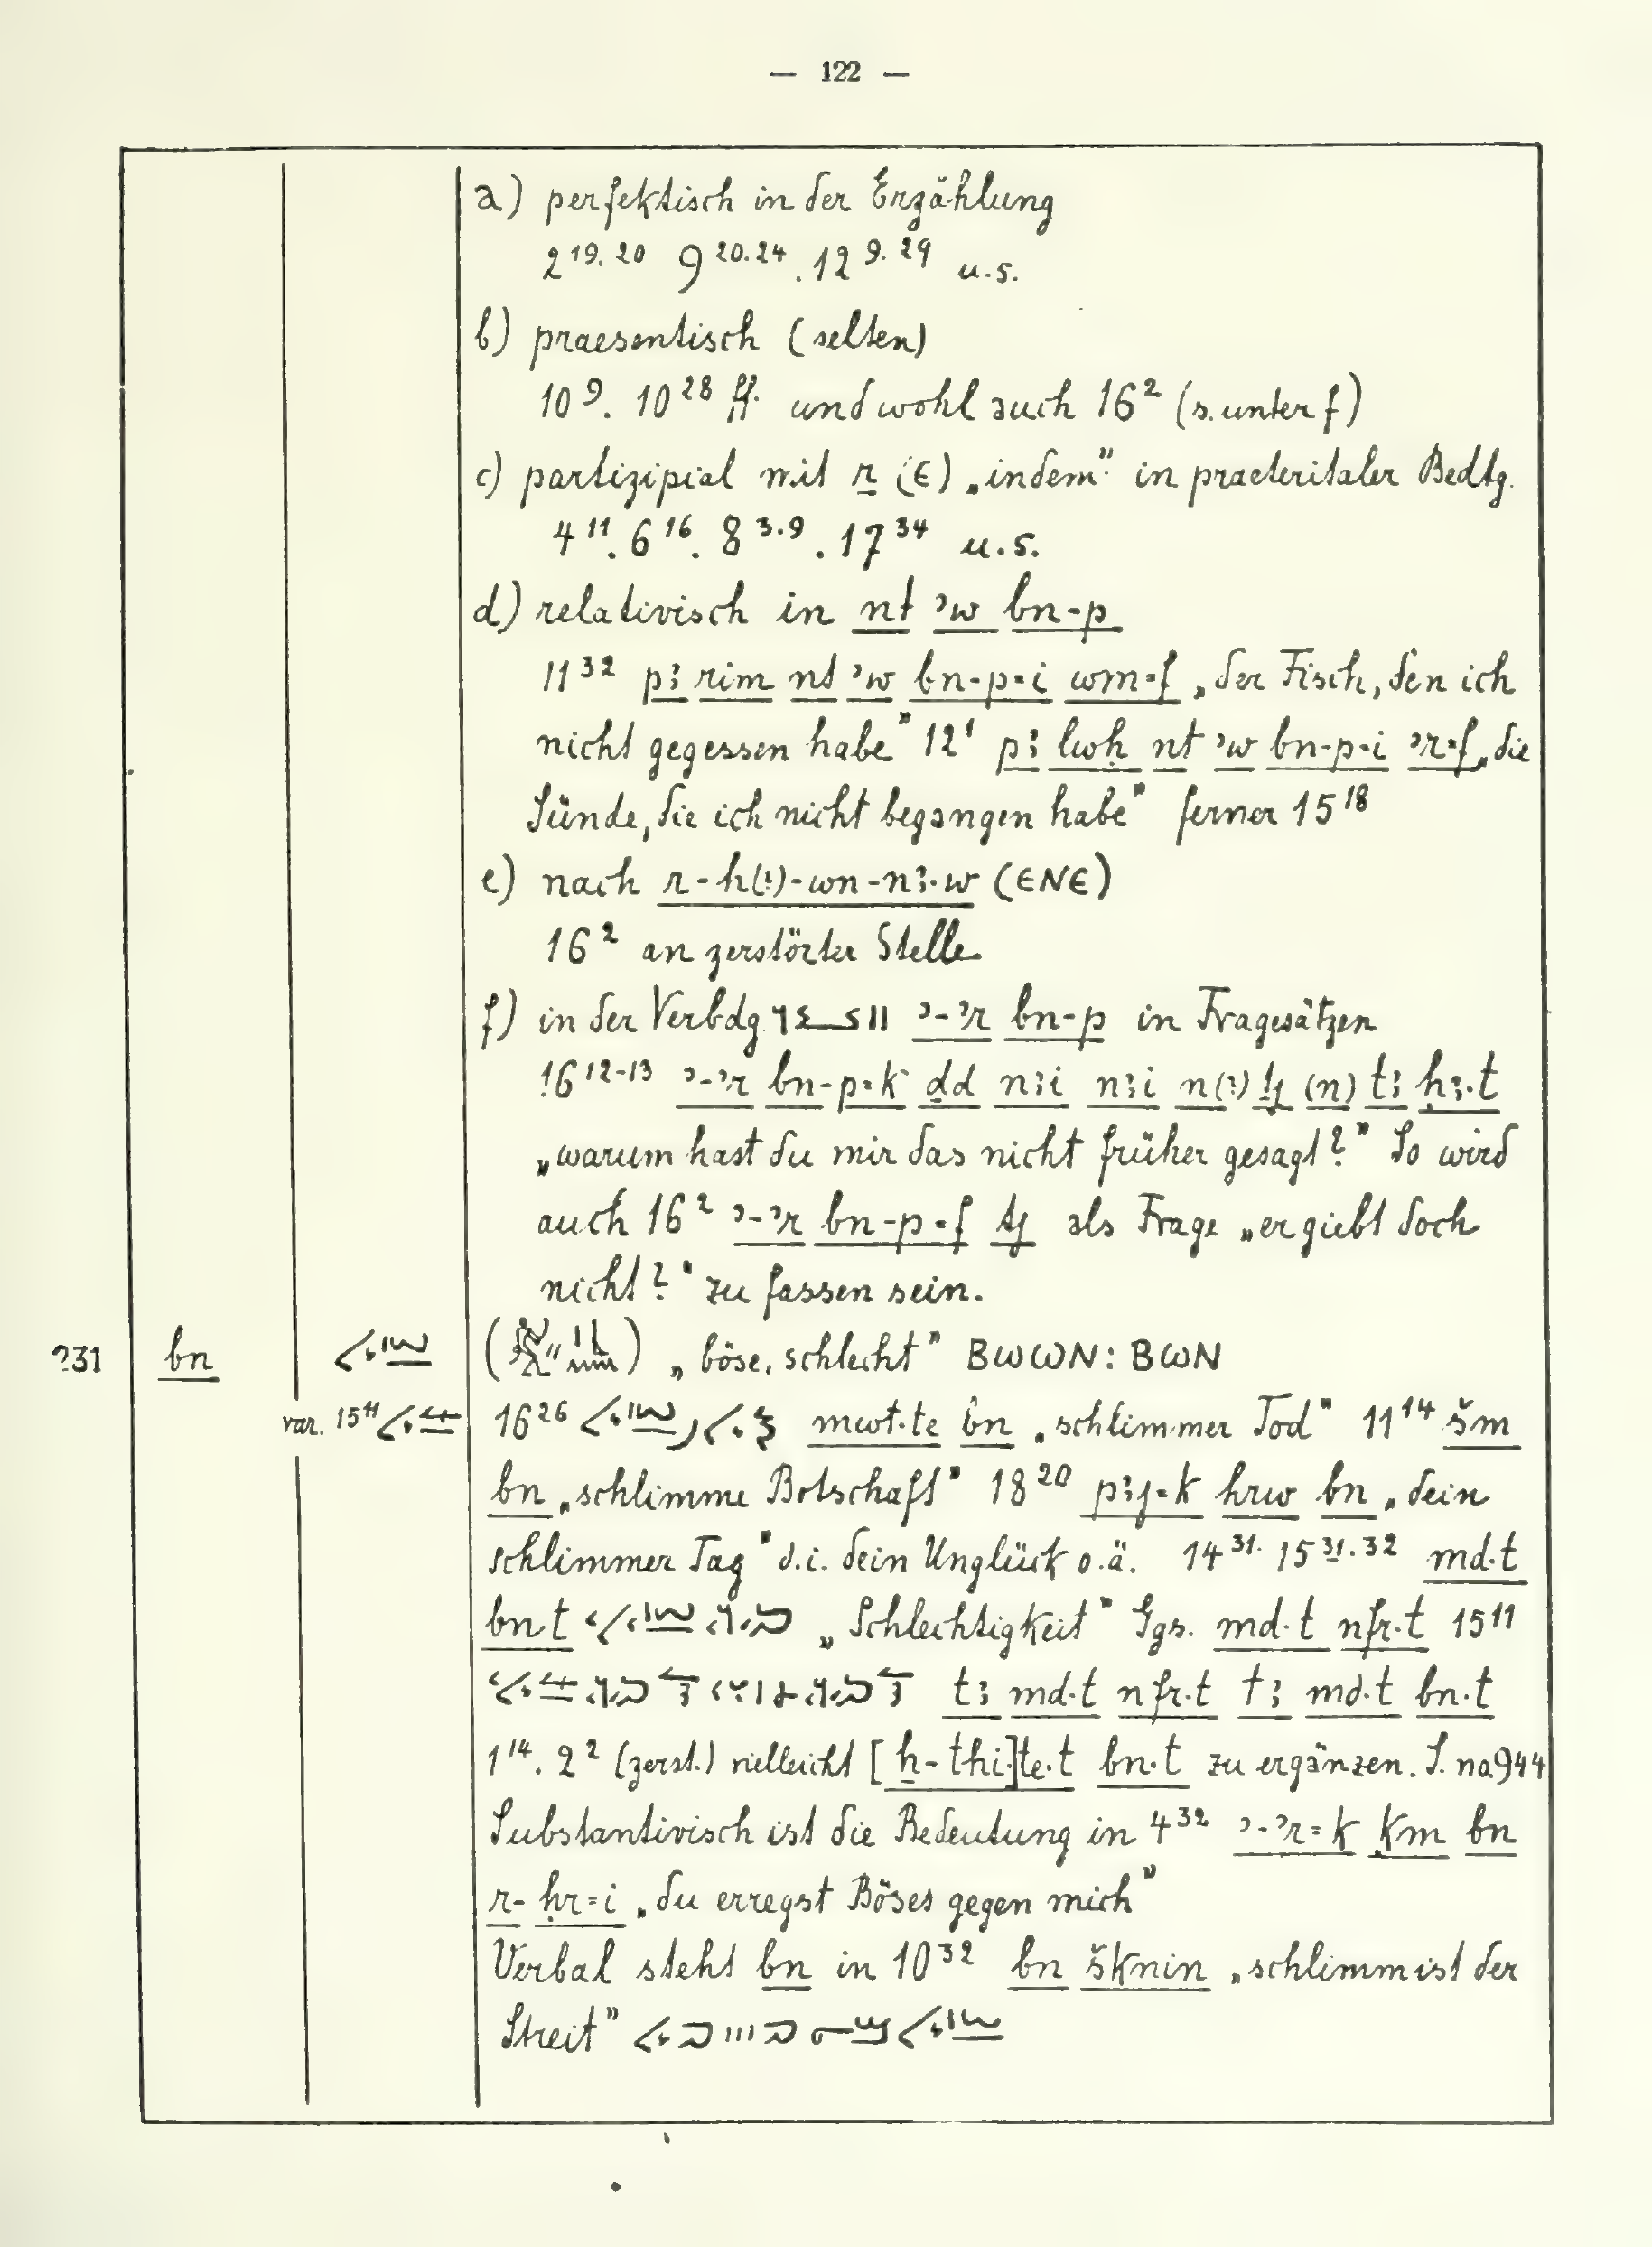 — 122 —
a) perfektisch in der Erzählung
2 19. 20 9 20.24. 12 9. 29 u. s.
b) praesentisch (selten)
10 9. 10 28 ff. und wohl auch 16 2 (s. unter f)
c) partizipial mit r (ⲉ) „indem” in praeteritaler Bedtg.
4 11. 6 16. 8 3.9. 17 34 u. s.
d) relativisch in nt ʾw bn-p
11 32 pꜣ rim nt ʾw bn-p=i wm=f „der Fisch, den ich
nicht gegessen habe” 12 1 pꜣ lwḫ nt ʾw bn-p-i ʾr=f „die
Sünde, die ich nicht begangen habe” ferner 15 18
e) nach r-h(ꜣ)-wn-nꜣ.w (ⲉⲛⲉ)
16 2 an zerstörter Stelle.
f) in der Verbdg. ʾ-ʾr bn-p in Fragesätzen
16 12-13 ʾ-ʾr bn-p=k ḏd nꜣi nꜣi n(ꜣ) (n) tꜣ ḥꜣ.t
„warum hast du mir das nicht früher gesagt?” So wird
auch 16 2 ʾ-ʾr bn-p=f tj als Frage „er giebt doch
nicht?” zu fassen sein.
231 bn „böse, schlecht” ⲃⲱⲱⲛ: ⲃⲱⲛ
var. 15 11 16 26 mwt.te bn „schlimmer Tod” 11 14 šm
bn „schlimme Botschaft” 18 20 pꜣj=k hrw bn „dein
schlimmer Tag” d.i. dein Unglück o.ä. 14 31. 15 31.32 md.t
bn.t „Schlechtigkeit” Ggs. md.t nfr.t 15 11
tꜣ md.t nfr.t tꜣ md.t bn.t
1 14. 2 2 (zerst.) vielleicht [ẖ-thi]te.t bn.t zu ergänzen. S. no. 944
Substantivisch ist die Bedeutung in 4 32 ʾ-ʾr=k ḳm bn
r-ḥr=i „du erregst Böses gegen mich”
Verbal steht bn in 10 32 bn šknin „schlimm ist der
Streit”